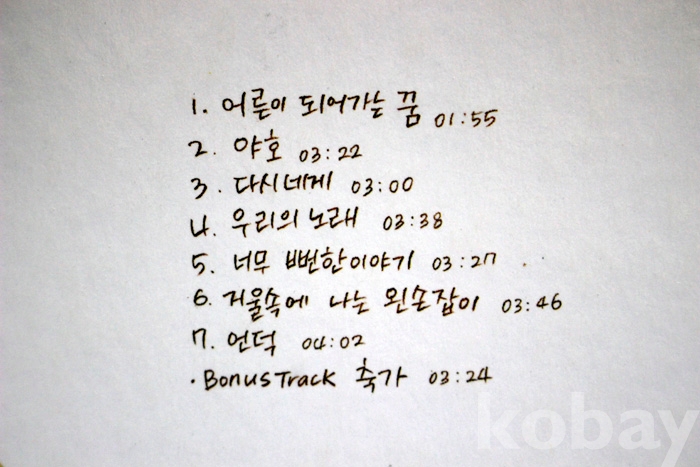 1. 어른이 되어가는 꿈 01:55
2. 야호 03:22
3. 다시네게 03:00
4. 우리의 노래 03:38
5. 너무 뻔한이야기 03:27
6. 거울속에 나는 왼손잡이 03:46
7. 언덕 04:02
·BonusTrack 축가 03:24
kobay